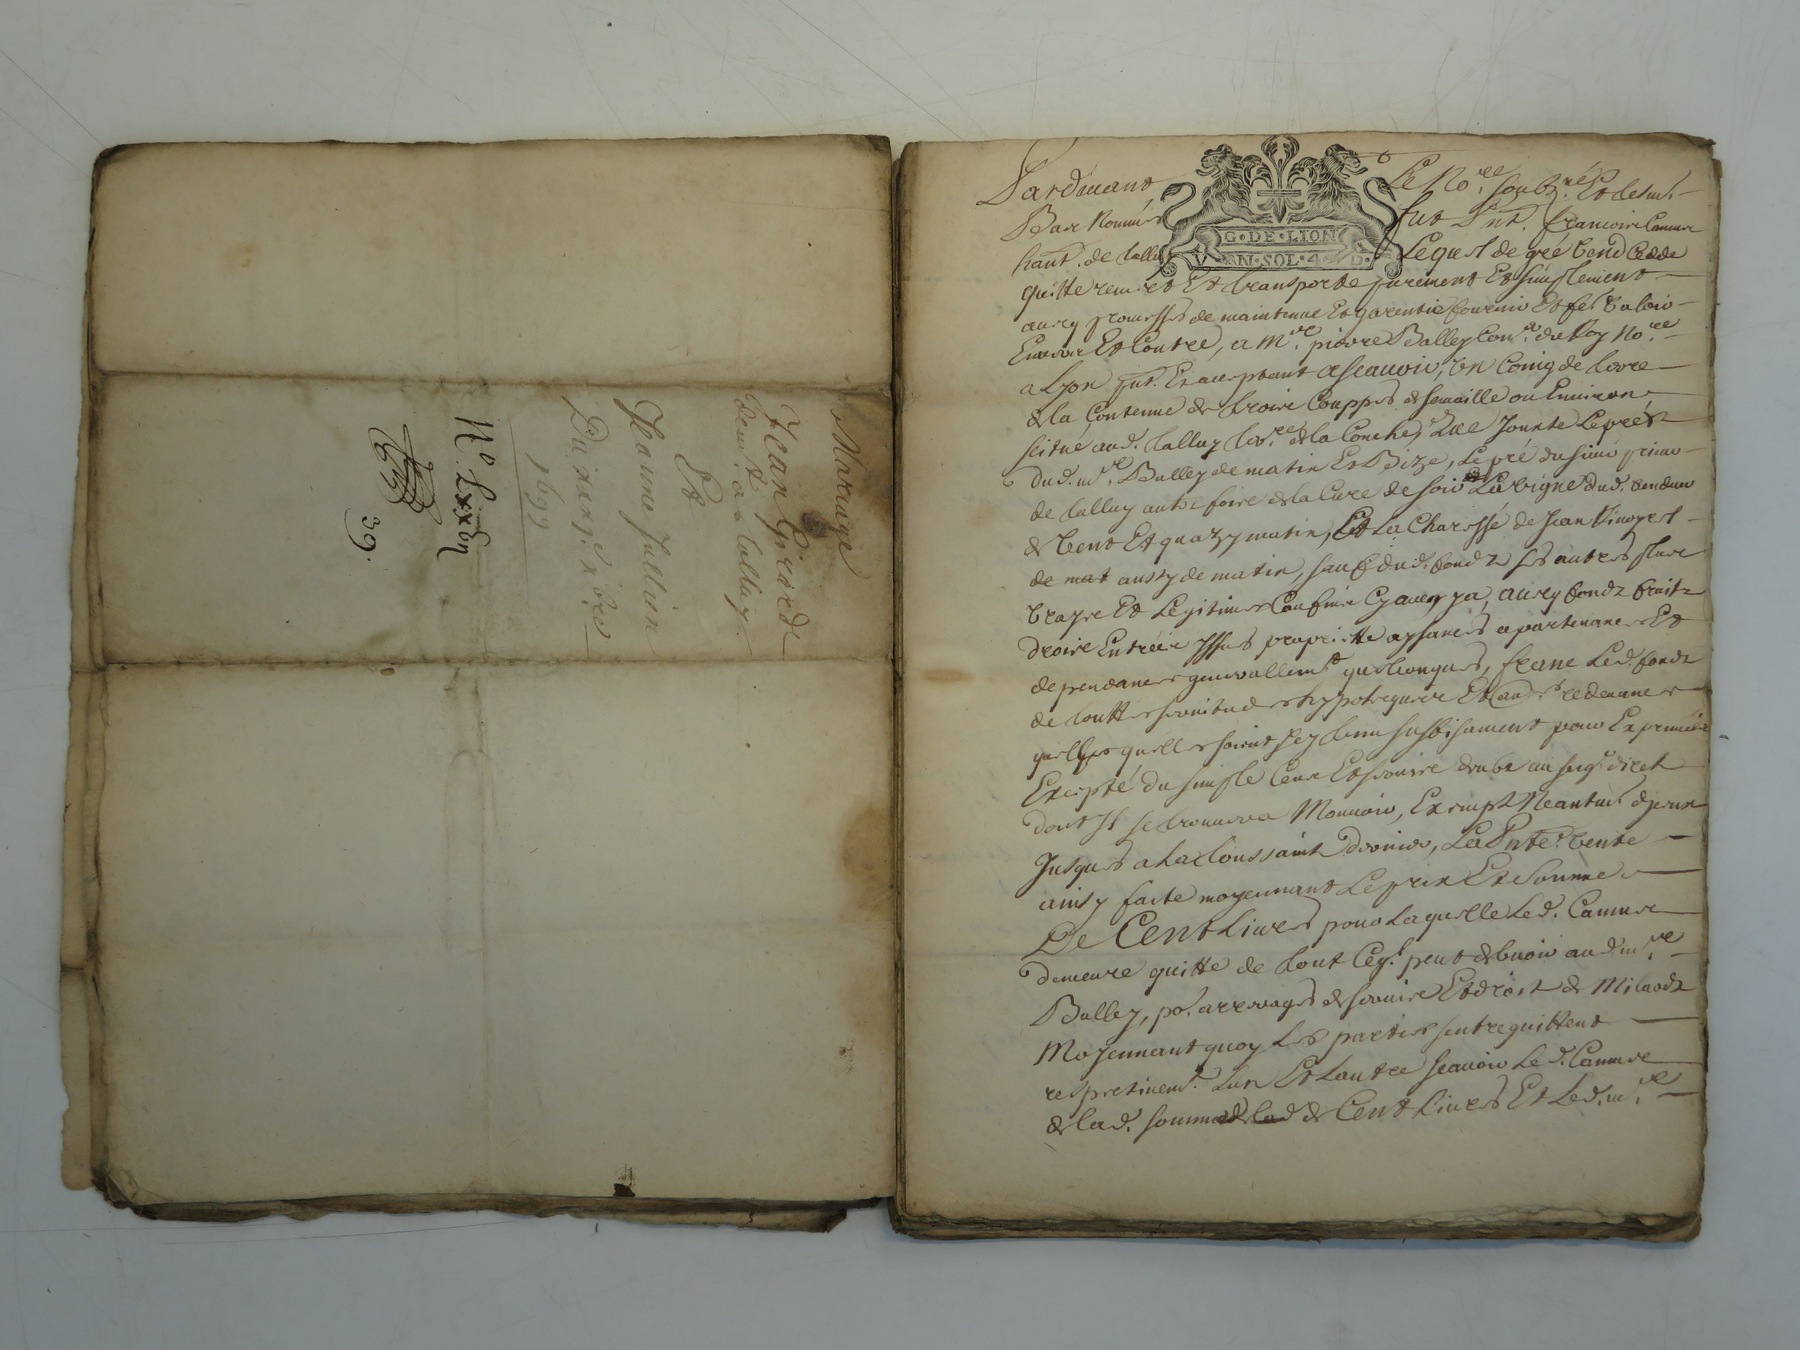 Mariage
Jean Girard
demt. a talluy
Et
Jeanne Jullien
Du
1692
No. Lxxbij
39.
G·DE·LION
V AN·SOL·4·D·
Pardevant Le Nore. soubzné. Et
Bas Nommés fut Pnt. francois Camure
hant. de talluy Lequel de gré vend Cedde
quitte remet Et transporte purement Et simplement
avecq promesses de maintenue Et garentie fournir Et fe. valoir
Envers Et Contre, a Mre. pierre Balley Conr. du Roy Nore.
a Lyon pnt. Et acceptant ascauoir, Un Coing de terre
de la Contenue de trois Couppes de semaille ou Environ,
scitué aud. talluy de la Conche, Jouxte Le pré
dud. mre. Balley de matin Et Bize, Le pré du prieur
de talluy de la Cure de soir La vigne dud. vendeur
de vent Et quazy matin, Et La Charssé de Jean
de mat aussy de matin, sauf dud. fondz ses autres plus
vrays Et Legitimes Confins Cy aucuns y a, avecq fondz fruitz
droits Entrées Issues proprietté aysances apartenances Et
dependances generallemt. quelconques, franc Led. fondz
de touttes servitudes hypotecques Et redevances
quelles quelles soient Icy tenu suffisament pour Exprimées
Excepté du simple Cens Et servis deubz au seigr. direct
dont Il se trouvera Mouvoir, Exempt Neantmt. d
Jusques a La toussaint dernier, La Pnte. vente
ainsy faite moyennant Le prix Et Somme
De Cent Livres pour Laquelle Led. Camure
demeure quitte de tout Ce ql. peut debvoir aud. mre.
Balley, pr. arrerages de servis Et droit de Milaodz
Moyennant quoy Les parties sentrequittent
respectivemt. Lun Et Lautre scavoir Led. Camure
de lad. somme de Cent Livres Et Led. mre.